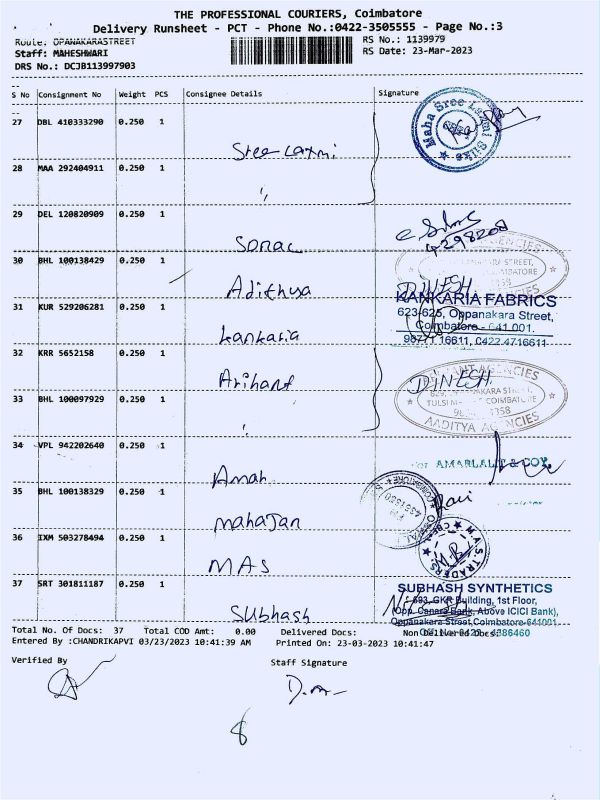 THE PROFESSIONAL COURIERS, Coimbatore
Delivery Runsheet - PCT - Phone No.:0422-3505555 - Page No.:3
Route: OPANAKARASTREET
RS No.: 1139979
Staff: MAHESHWARI
RS Date: 23-Mar-2023
DRS No.: DCJB113997903
S No Consignment No Weight PCS Consignee Details Signature
27 DBL 410333290 0.250 1
Sree Laxmi
Maha Sree Laxmi Silks
28 MAA 292404911 0.250 1
"
29 DEL 120820909 0.250 1
Sonac
30 BHL 100138429 0.250 1
Adithya
DINESH
KANKARIA FABRICS
623-625, Oppanakara Street,
Coimbatore - 641 001.
98771 16611, 0422 4716611
31 KUR 529206281 0.250 1
Kankaria
32 KRR 5652158 0.250 1
Arihant
DINESH
AADITYA AGENCIES
33 BHL 100097929 0.250 1
"
34 VPL 942202640 0.250 1
Amar
For AMARLAL & COY.
35 BHL 100138329 0.250 1
mahajan
Ravi
36 IXM 503278494 0.250 1
MAS
M.A.S. TRADERS
37 SRT 301811187 0.250 1
Subhash
SUBHASH SYNTHETICS
693, GKR Building, 1st Floor,
(Opp. Canara Bank, Above ICICI Bank),
Oppanakara Street, Coimbatore-641001
Total No. Of Docs: 37 Total COD Amt: 0.00 Delivered Docs: Non Delivered Docs:
Entered By :CHANDRIKAPVI 03/23/2023 10:41:39 AM Printed On: 23-03-2023 10:41:47
Verified By Staff Signature
8